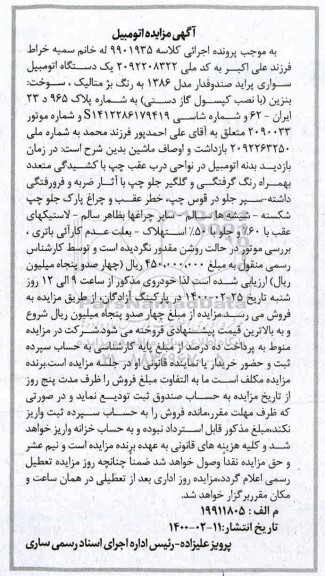 آگهی مزایده اتومبیل
به موجب پرونده اجرائی کلاسه ۹۹۰۱۹۳۵ له خانم سمیه خراط
فرزند علی اکبر به کد ملی ۲۰۹۲۲۰۸۳۲۲ یک دستگاه اتومبیل
سواری پراید صندوقدار مدل ۱۳۸۶ به رنگ بژ متالیک ، سوخت:
بنزین (با نصب کپسول گاز دستی) به شماره پلاک ۹۶۵ د ۲۳
ایران - ۶۲ و شماره شاسی S۱۴۱۲۲۸۶۱۷۹۴۱۹ و شماره موتور
۲۰۹۰۰۳۳ متعلق به آقای علی احمدپور فرزند محمد به شماره ملی
۲۰۹۲۲۶۳۲۵۰ بازداشت و اوصاف ماشین بدین شرح است: در زمان
بازدید بدنه اتومبیل در نواحی درب عقب چپ با کشیدگی متعدد
بهمراه رنگ گرفتگی و گلگیر جلو چپ با آثار ضربه و فرورفتگی
داشته-سپر جلو در قوس چپ، خطر عقب و چراغ پارک جلو چپ
شکسته - شیشه ها سالم - سایر چراغها بظاهر سالم - لاستیکهای
عقب با ۶۰٪ و جلو با ۵۰٪ استهلاک - بعلت عدم کارآئی باتری ،
بررسی موتور در حالت روشن مقدور نگردیده است و توسط کارشناس
رسمی منقول به مبلغ ۴۵۰،۰۰۰،۰۰۰ ریال (چهار صدو پنجاه میلیون
ریال) ارزیابی شده است لذا خودروی مذکور از ساعت ۹ الی ۱۲ روز
شنبه تاریخ ۲۵-۰۲-۱۴۰۰ در پارکینگ آزادگان، از طریق مزایده به
فروش می رسد.مزایده از مبلغ چهار صدو پنجاه میلیون ریال شروع
و به بالاترین قیمت پیشنهادی فروخته می شود.شرکت در مزایده
منوط به پرداخت ده درصد از مبلغ پایه کارشناسی به حساب سپرده
ثبت و حضور خریدار یا نماینده قانونی او در جلسه مزایده است.برنده
مزایده مکلف است ما به التفاوت مبلغ فروش را ظرف مدت پنج روز
از تاریخ مزایده به حساب صندوق ثبت تودیع نماید و در صورتی
که ظرف مهلت مقرر،مانده فروش را به حساب سپرده ثبت واریز
نکند،مبلغ مذکور قابل استرداد نبوده و به حساب خزانه واریز خواهد
شد و کلیه هزینه های قانونی به عهده برنده مزایده است و نیم عشر
و حق مزایده نقداً وصول خواهد شد ضمناً چنانچه روز مزایده تعطیل
رسمی اعلام گردد،مزایده روز اداری بعد از تعطیلی در همان ساعت و
مکان مقرربرگزار خواهد شد.
م الف : ۱۹۹۱۱۸۰۵
تاریخ انتشار:۱۱-۰۲-۱۴۰۰
پرویز علیزاده-رئیس اداره اجرای اسناد رسمی ساری